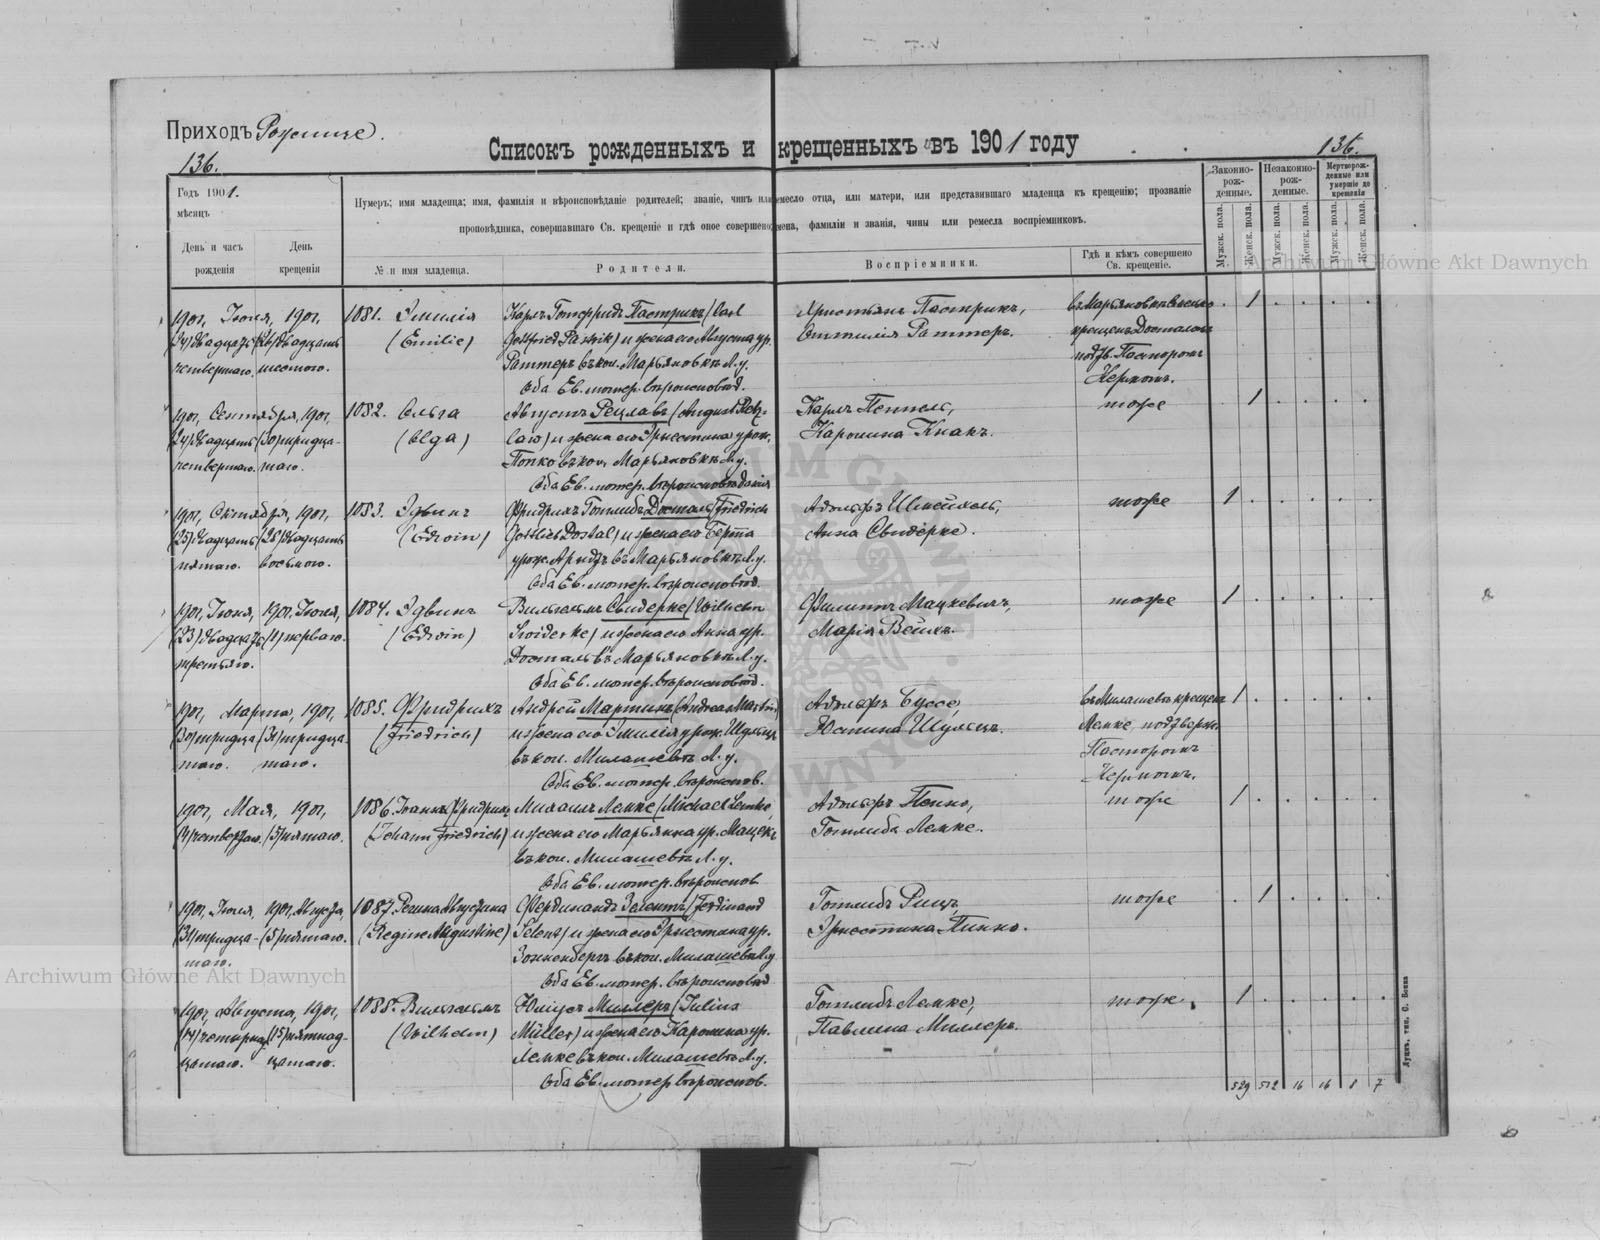 Приходъ Рожище.
136.
Списокъ рожденныхъ и крещенныхъ въ 1901 году
136.
Годъ 1901.
мѣсяцъ
День и часъ рожденія
День крещенія
Нумеръ; имя младенца; имя, фамилія и вѣроисповѣданіе родителей; званіе, чинъ или ремесло отца, или матери, или представившаго младенца къ крещенію; прозваніе
проповѣдника, совершавшаго Св. крещеніе и гдѣ оное совершено; имена, фамиліи и званія, чины или ремесла воспріемниковъ.
№ и имя младенца.
Родители.
Воспріемники.
Гдѣ и кѣмъ совершено Св. крещеніе.
Законно-рож-денные.
Незаконно-рож-денные.
Мертворож-денные или умершіе до крещенія
Мужск. пола.
Женск. пола.
Мужск. пола.
Женск. пола.
Мужск. пола.
Женск. пола.
Archiwum Główne Akt Dawnych
1901, Іюля, 1901,
(24) двадцать (26) двадцать
четвертаго. шестого.
1081. Эмилія
(Emilie)
Карлъ Готфридъ Пастрикъ (Carl
Gottfried Pastrik) и жена его Августа ур.
Раттеръ въ кол. Марьяновкѣ Л. у.
Оба Ев. лютер. вѣроисповѣд.
Христьянъ Пастрикъ,
Оттилія Раттеръ.
въ Марьяновкѣ
крещенъ Досталомъ
подтв. Пасторомъ
Керномъ.
1
1901, Сентября, 1901,
(24) двадцать (30) тридца-
четвертаго. таго.
1082. Ольга
(Olga)
Августъ Рецлавъ (August Retz-
law) и жена его Эрнестина урож.
Попко въ кол. Марьяновкѣ Л. у.
Оба Ев. лютер. вѣроисповѣданія
Карлъ Пеппель,
Каролина Кнакъ.
тоже
1
1901, Октября, 1901,
(25) двадцать (28) двадцать
пятаго. восьмого.
1083. Эдвинъ
(Edwin)
Фридрихъ Готлибъ Досталь (Friedrich
Gottlieb Dostal) и жена его Берта
урож. Арндтъ въ Марьяновкѣ Л. у.
Оба Ев. лютер. вѣроисповѣд.
Адольфъ
Анна Свидерке.
тоже
1
1901, Іюня, 1901, Іюля,
(23) двадцать (1) перваго.
третьяго.
1084. Эдвинъ
(Edwin)
Вильгельмъ Свидерке (Wilhelm
Swiderke) и жена его Анна ур.
Досталь въ Марьяновкѣ Л. у.
Оба Ев. лютер. вѣроисповѣд.
Филиппъ Мацкевичъ,
Марія Вейхъ.
тоже
1
1901, Марта, 1901,
(30) тридца- (31) тридца-
таго. таго.
1085. Фридрихъ
(Friedrich)
Андрей Мартинъ (Andreas Martin)
и жена его Эмилія урож. Шульцъ
въ кол. Милашевъ Л. у.
Оба Ев. лютер. вѣроиспов.
Адольфъ Буссе,
Юстина Шульцъ.
въ Милашевѣ крещенъ
Лемке, подтвержд.
Пасторомъ
Керномъ.
1
1901, Мая, 1901,
(4) четвертаго. (5) пятаго.
1086. Іоаннъ Фридрихъ
(Johann Friedrich)
Михаилъ Лемке (Michael Lemke)
и жена его Марьянна ур. Мацекъ
въ кол. Милашевъ Л. у.
Оба Ев. лютер. вѣроиспов.
Адольфъ Попко,
Готлибъ Лемке.
тоже
1
1901, Іюля, 1901, Августа,
(31) тридца- (5) пятаго.
таго.
1087. Регина Августина
(Regine Augustine)
Фердинандъ Зеленцъ (Ferdinand
Selenz) и жена его Эрнестина ур.
Зонненбергъ въ кол. Милашевъ Л. у.
Оба Ев. лютер. вѣроисповѣд.
Готлибъ Рицъ,
Эрнестина Пинно.
тоже
1
Archiwum Główne Akt Dawnych
1901, Августа, 1901,
(14) четырнад- (15) пятнад-
цатаго. цатаго.
1088. Вильгельмъ
(Wilhelm)
Юліусъ Миллеръ (Julius
Müller) и жена его Каролина ур.
Лемке въ кол. Милашевъ Л. у.
Оба Ев. лютер. вѣроиспов.
Готлибъ Лемке,
Павлина Миллеръ.
тоже
1
529 512 16 16 8 7